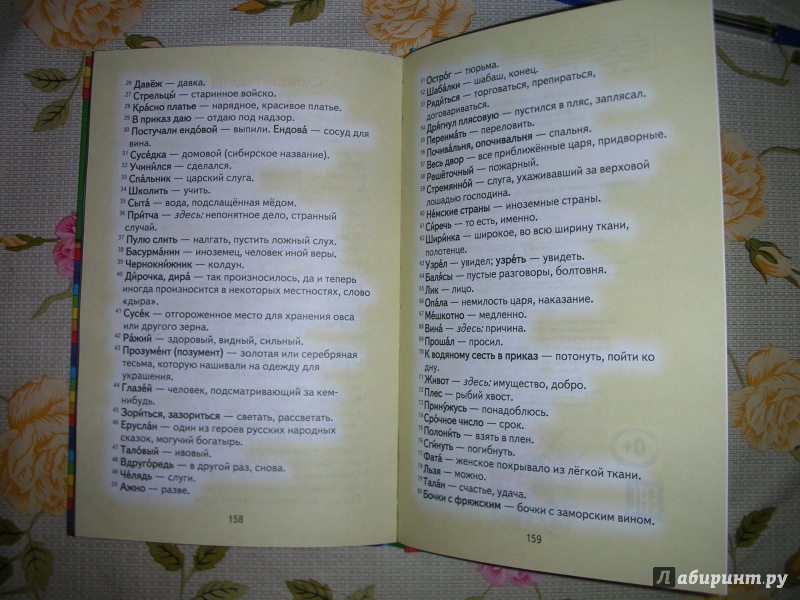 26 Давёж — давка.
27 Стрельцы́ — старинное войско.
28 Кра́сно платье — нарядное, красивое платье.
29 В приказ даю — отдаю под надзор.
30 Постучали ендо́вой — выпили. Ендова́ — сосуд для
вина.
31 Сусе́дка — домовой (сибирское название).
32 Учини́лся — сделался.
33 Спа́льник — царский слуга.
34 Шко́лить — учить.
35 Сыта́ — вода, подслащённая мёдом.
36 При́тча — здесь: непонятное дело, странный
случай.
37 Пулю слить — налгать, пустить ложный слух.
38 Басурма́нин — иноземец, человек иной веры.
39 Чернокни́жник — колдун.
40 Ди́рочка, дира́ — так произносилось, да и теперь
иногда произносится в некоторых местностях, слово
«дыра».
41 Сусе́к — отгороженное место для хранения овса
или другого зерна.
42 Ра́жий — здоровый, видный, сильный.
43 Прозуме́нт (позумент) — золотая или серебряная
тесьма, которую нашивали на одежду для
украшения.
44 Глазе́й — человек, подсматривающий за кем-
нибудь.
45 Зори́ться, зазориться — светать, рассветать.
46 Ерусла́н — один из героев русских народных
сказок, могучий богатырь.
47 Тало́вый — ивовый.
48 Вдруго́редь — в другой раз, снова.
49 Че́лядь — слуги.
50 Ажно — разве.
158
51 Остро́г — тюрьма.
52 Шаба́лки — шабаш, конец.
53 Ряди́ться — торговаться, препираться,
договариваться.
54 Дря́гнул плясовую — пустился в пляс, заплясал.
55 Переима́ть — переловить.
56 Почива́льня, опочивальня — спальня.
57 Весь двор — все приближённые царя, придворные.
58 Решёточный — пожарный.
59 Стремянно́й — слуга, ухаживавший за верховой
лошадью господина.
60 Не́мские страны — иноземные страны.
61 Си́речь — то есть, именно.
62 Шири́нка — широкое, во всю ширину ткани,
полотенце.
63 Узре́л — увидел; узре́ть — увидеть.
64 Баля́сы — пустые разговоры, болтовня.
65 Лик — лицо.
66 Опа́ла — немилость царя, наказание.
67 Ме́шкотно — медленно.
68 Вина́ — здесь: причина.
69 Проша́л — просил.
70 К водяному сесть в приказ — потонуть, пойти ко
дну.
71 Живот — здесь: имущество, добро.
72 Плес — рыбий хвост.
73 Прину́жусь — понадоблюсь.
74 Сро́чное число — срок.
75 Полони́ть — взять в плен.
76 Сги́нуть — погибнуть.
77 Фата́ — женское покрывало из лёгкой ткани.
78 Льзя — можно.
79 Тала́н — счастье, удача.
80 Бочки с фряжским — бочки с заморским вином.
159
0+
Лабиринт.ру